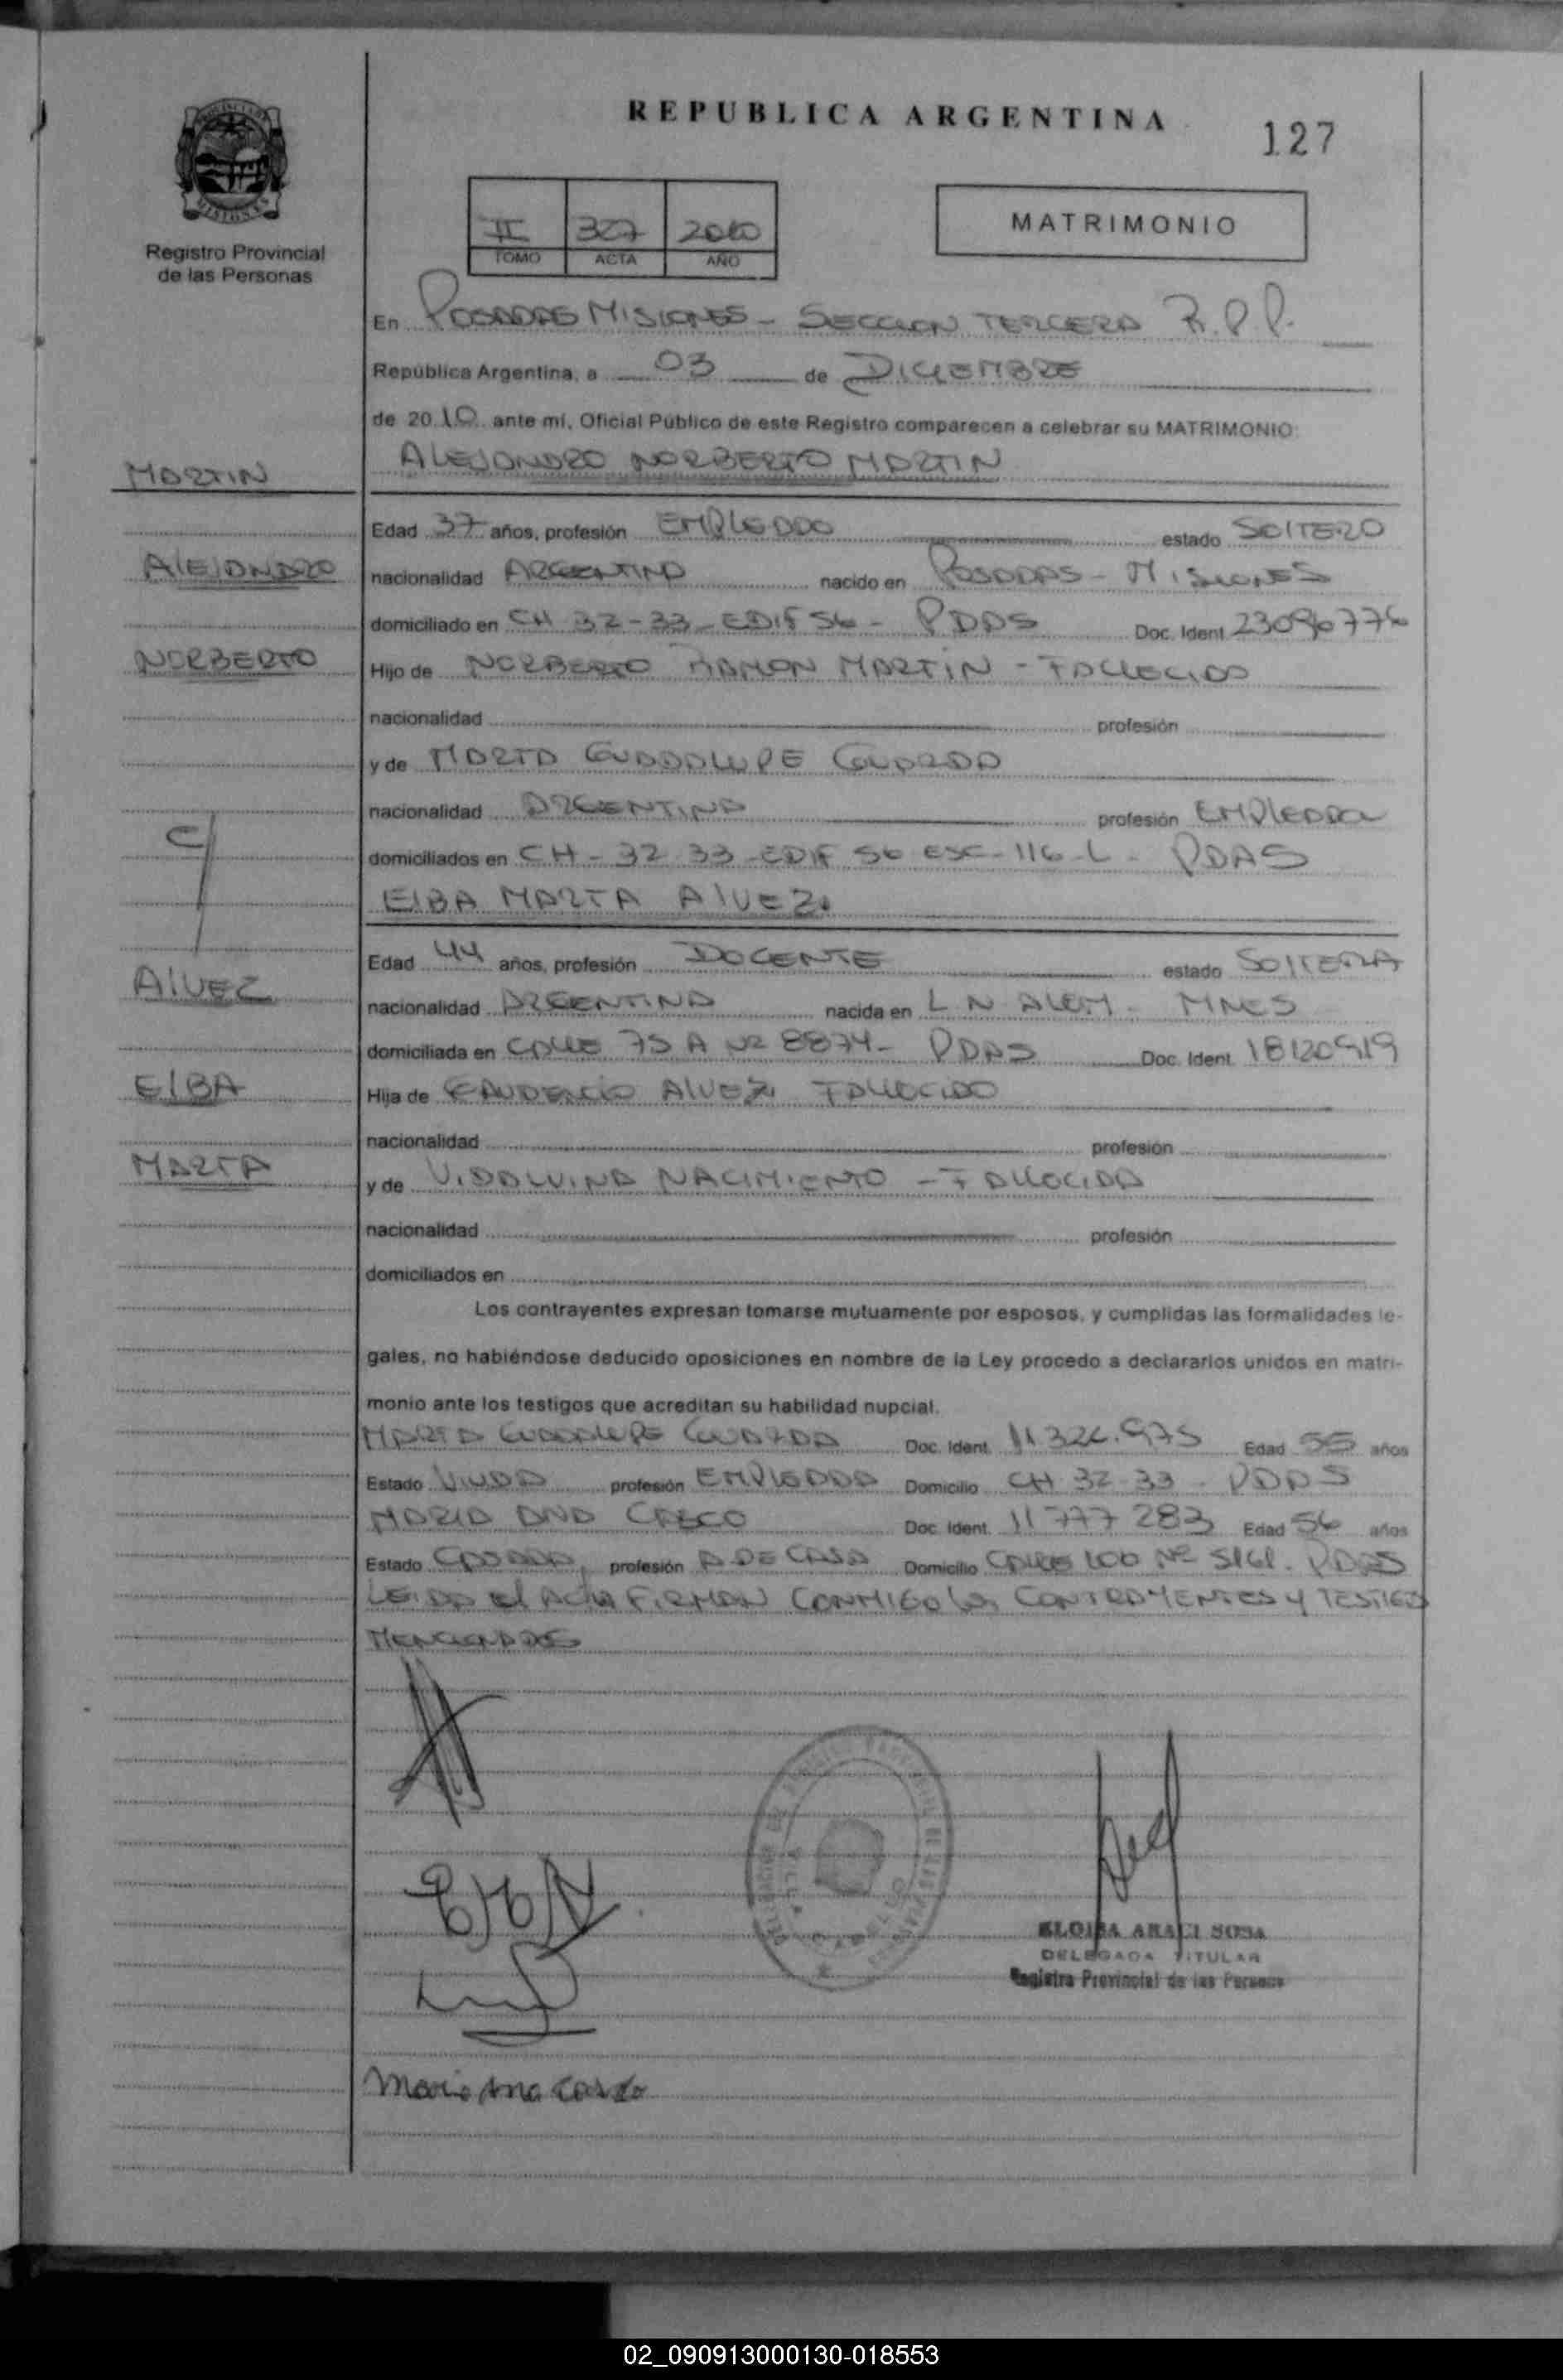 REPUBLICA ARGENTINA
127
Registro Provincial
de las Personas
II 327 2010
TOMO ACTA AÑO
MATRIMONIO
En POSADAS MISIONES - SECCION TERCERA R.P.P.
República Argentina, a 03 de DICIEMBRE
de 2010 ante mí, Oficial Público de este Registro comparecen a celebrar su MATRIMONIO:
MARTIN
ALEJANDRO NORBERTO MARTIN
Edad 37 años, profesión EMPLEADO estado SOLTERO
ALEJANDRO
nacionalidad ARGENTINA nacido en POSADAS - MISIONES
domiciliado en CH 32-33-EDIF 56 - PDAS Doc. Ident. 23096776
NORBERTO
Hijo de NORBERTO RAMON MARTIN - FALLECIDO
nacionalidad profesión
y de MARTA GUADALUPE
nacionalidad ARGENTINA profesión EMPLEADA
C/
domiciliados en CH - 32 33 - EDIF 56 ESC - 116 - L - PDAS
ELBA MARTA ALVEZ.
Edad 44 años, profesión DOCENTE estado SOLTERA
ALVEZ
nacionalidad ARGENTINA nacida en L N ALEM - MNES
domiciliada en CALLE 75 A Nº 8874 - PDAS Doc. Ident. 18120919
ELBA
Hija de GAUDENCIO ALVEZ FALLECIDO
nacionalidad profesión
MARTA
y de VIDALVINA NACIMIENTO - FALLECIDA
nacionalidad profesión
domiciliados en
Los contrayentes expresan tomarse mutuamente por esposos, y cumplidas las formalidades le-
gales, no habiéndose deducido oposiciones en nombre de la Ley procedo a declararlos unidos en matri-
monio ante los testigos que acreditan su habilidad nupcial.
MARTA GUADALUPE Doc. Ident. 11.326.975 Edad 55 años
Estado VIUDA profesión EMPLEADA Domicilio CH 32-33 - PDAS
MARIA ANA Doc. Ident. 11 777 283 Edad 56 años
Estado CASADA, profesión A DE CASA Domicilio CALLE 100 Nº 5161. PDAS
LEIDA el ACTA FIRMAN CONMIGO los CONTRAYENTES Y TESTIGOS
MENCIONADOS
ELOISA ARACI SOSA
DELEGADA TITULAR
Registro Provincial de las Personas
Maria Ana
02_090913000130-018553